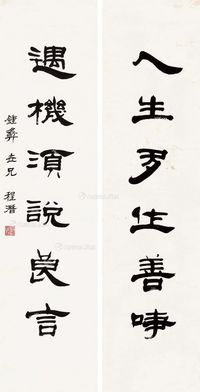 人生多作善事
遇機須說良言
鍾彝老兄 程潛